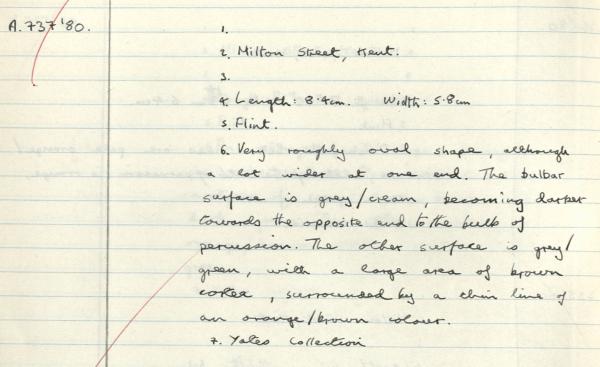 A.737'80.
1.
2. Milton Street, Kent.
3.
4. Length: 8.4cm. Width: 5.8cm
5. Flint.
6. Very roughly oval shape, although
a lot wider at one end. The bulbar
surface is grey/cream, becoming darker
towards the opposite end to the bulb of
percussion. The other surface is grey/
green, with a large area of brown
cortex, surrounded by a thin line of
an orange/brown colour.
7. Yates Collection